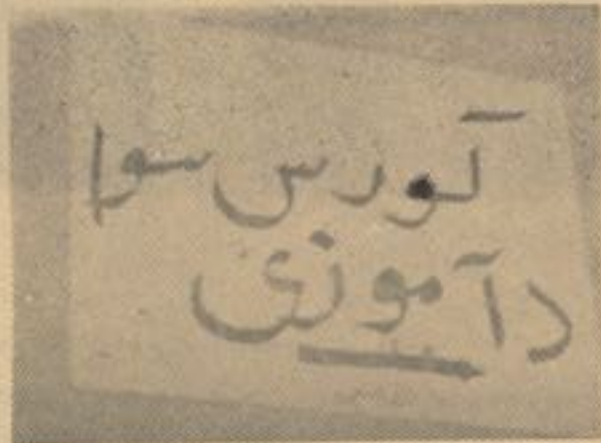 کورس سوا
د آموزی